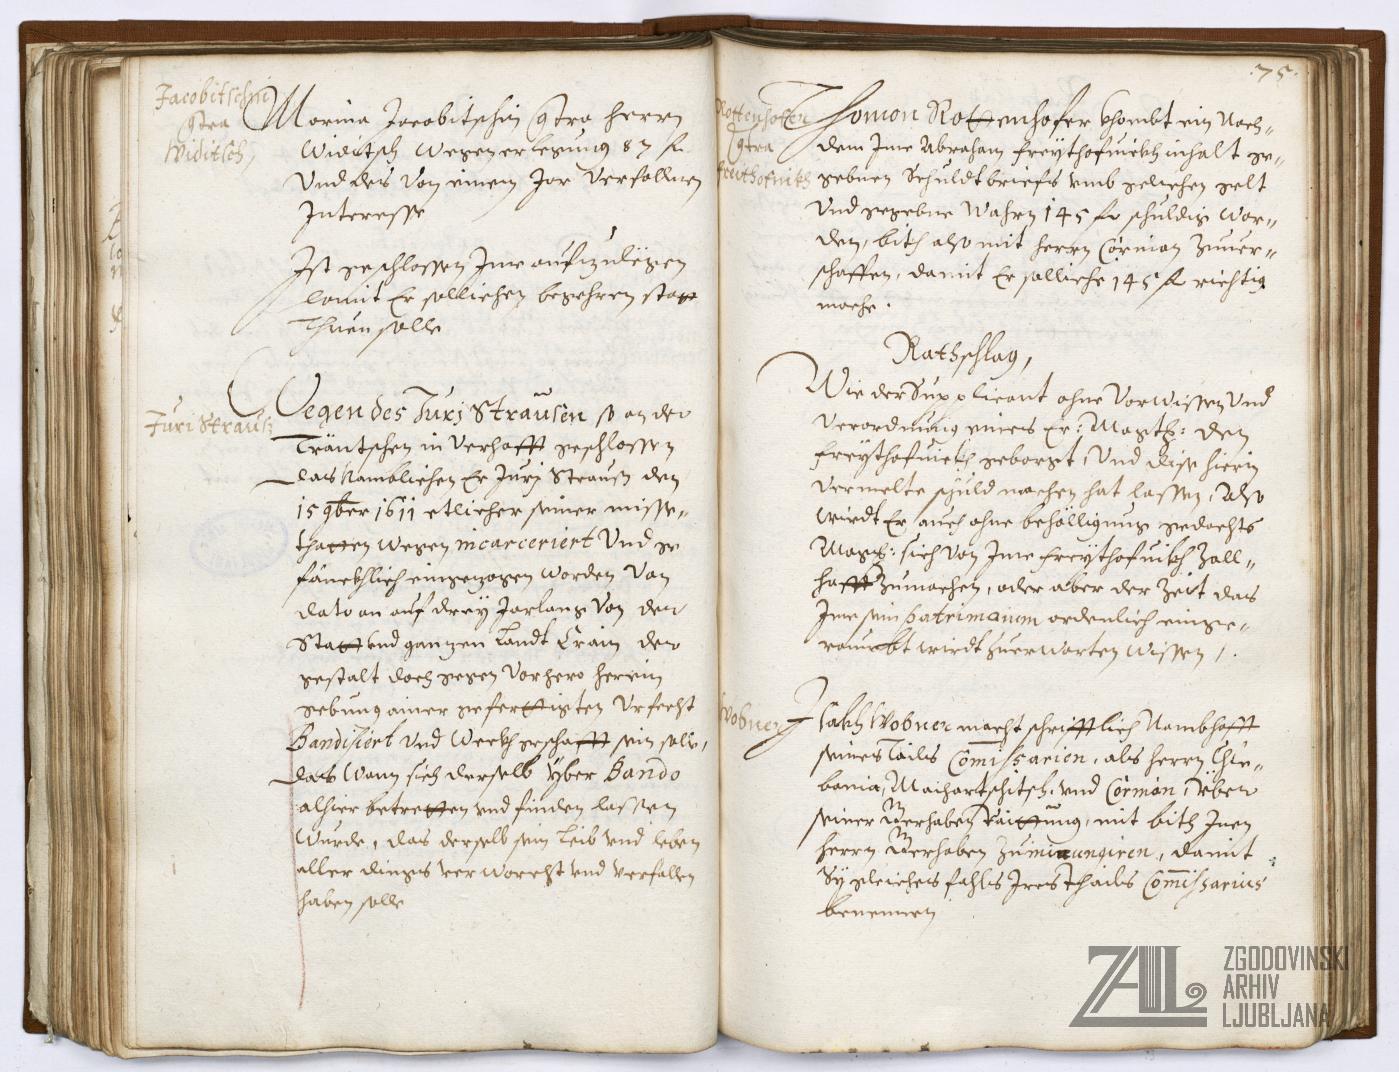 Jacobitschni
Contra
Widitsch
Marina Jacobitschin Contra herrn
Widitsch wegen erlegung 87 fl
Vnd des Von einem Jar Verfallnen
Interesse
Ist geschlossen Ime aufzulegen
damit Er solliches begehren statt
thuen solle
Juri Strauss
Wegen des Jurj Strausen so an der
Träntschen in Verhafft geschlossen
das Namblichen Er Jurj Strauss den
15 9ber 1611 etlicher seiner misse-
thatten wegen incarceriert Vnd ge
fänckhlich eingezogen worden Von
dato an auf dreÿ Jarlang Von der
Statt vnd ganzen Landt Crain der
gestalt doch gegen Vorhero herein
gebung ainer gefertigten Vrfecht
Bandisiert Vnd Weckh geschafft sein solle,
das Wann sich derselb Yber Bando
alhier betretten vnd finden lassen
Wurde, das derselb sein leib vnd leben
aller dings verworcht vnd verfallen
haben solle
75.
Rottenhofer
Contra
Freithofnikh
Thoman Rottenhofer khombt ein Nach-
dem Ime Abraham Freythofnickh inhalt ge-
gebnen Schuldtbriefs vmb gelichen gelt
Vnd gegebne Wahrn 145 fl schuldig wor-
den, bith also mit herrn Corman zuuer-
schaffen, damit Er solliche 145 fl richtig
mache.
Rathschlag,
Wie der Supplicant ohne VorWissen Vnd
Verordnung eines Er: Magist: den
Freythofnickh geborgt, Vnd dise hierin
Vermelte schuld machen hat lassen, Also
wirdt Er auch ohne behölligung gedachts
Magist: sich Von Ime Freythofnikh Zall-
hafft zumachen, oder aber der Zeit das
Ime sein patrimonium ordenlich einge-
raumbt wirdt zuerwarten wissen,
Wobner
Isakh Wobner macht schrifftlich Nambhafft
seines Tailss Commissarien, als herrn Chie-
bania, Maihartschitsch, vnd Corman, über
seiner Gerhaben Raittung, mit bith Inen
herrn Gerhaben zu
damit
Sÿ gleiches fahls Ires thails Commissarius
benennen
ZAL
ZGODOVINSKI
ARHIV
LJUBLJANA